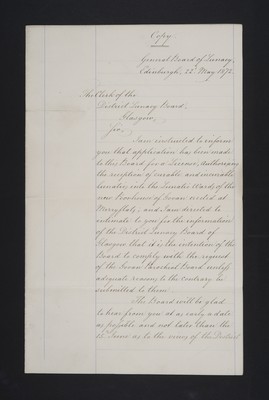 Copy
General Board of Lunacy,
Edinburgh, 22d May 1872.
The Clerk of the
District Lunacy Board,
Glasgow,
Sir,
I am instructed to inform
you that application has been made
to this Board for a License, authorizing
the reception of curable and incurable
lunatics into the Lunatic Wards of the
new Poorhouse of Govan erected at
Merryflats, and I am directed to
intimate to you for the information
of the District Lunacy Board of
Glasgow that it is the intention of the
Board to comply with the request
of the Govan Parochial Board unless
adequate reasons to the contrary be
submitted to them.
The Board will be glad
to hear from you at as early a date
as possible and not later than the
June as to the views of the District